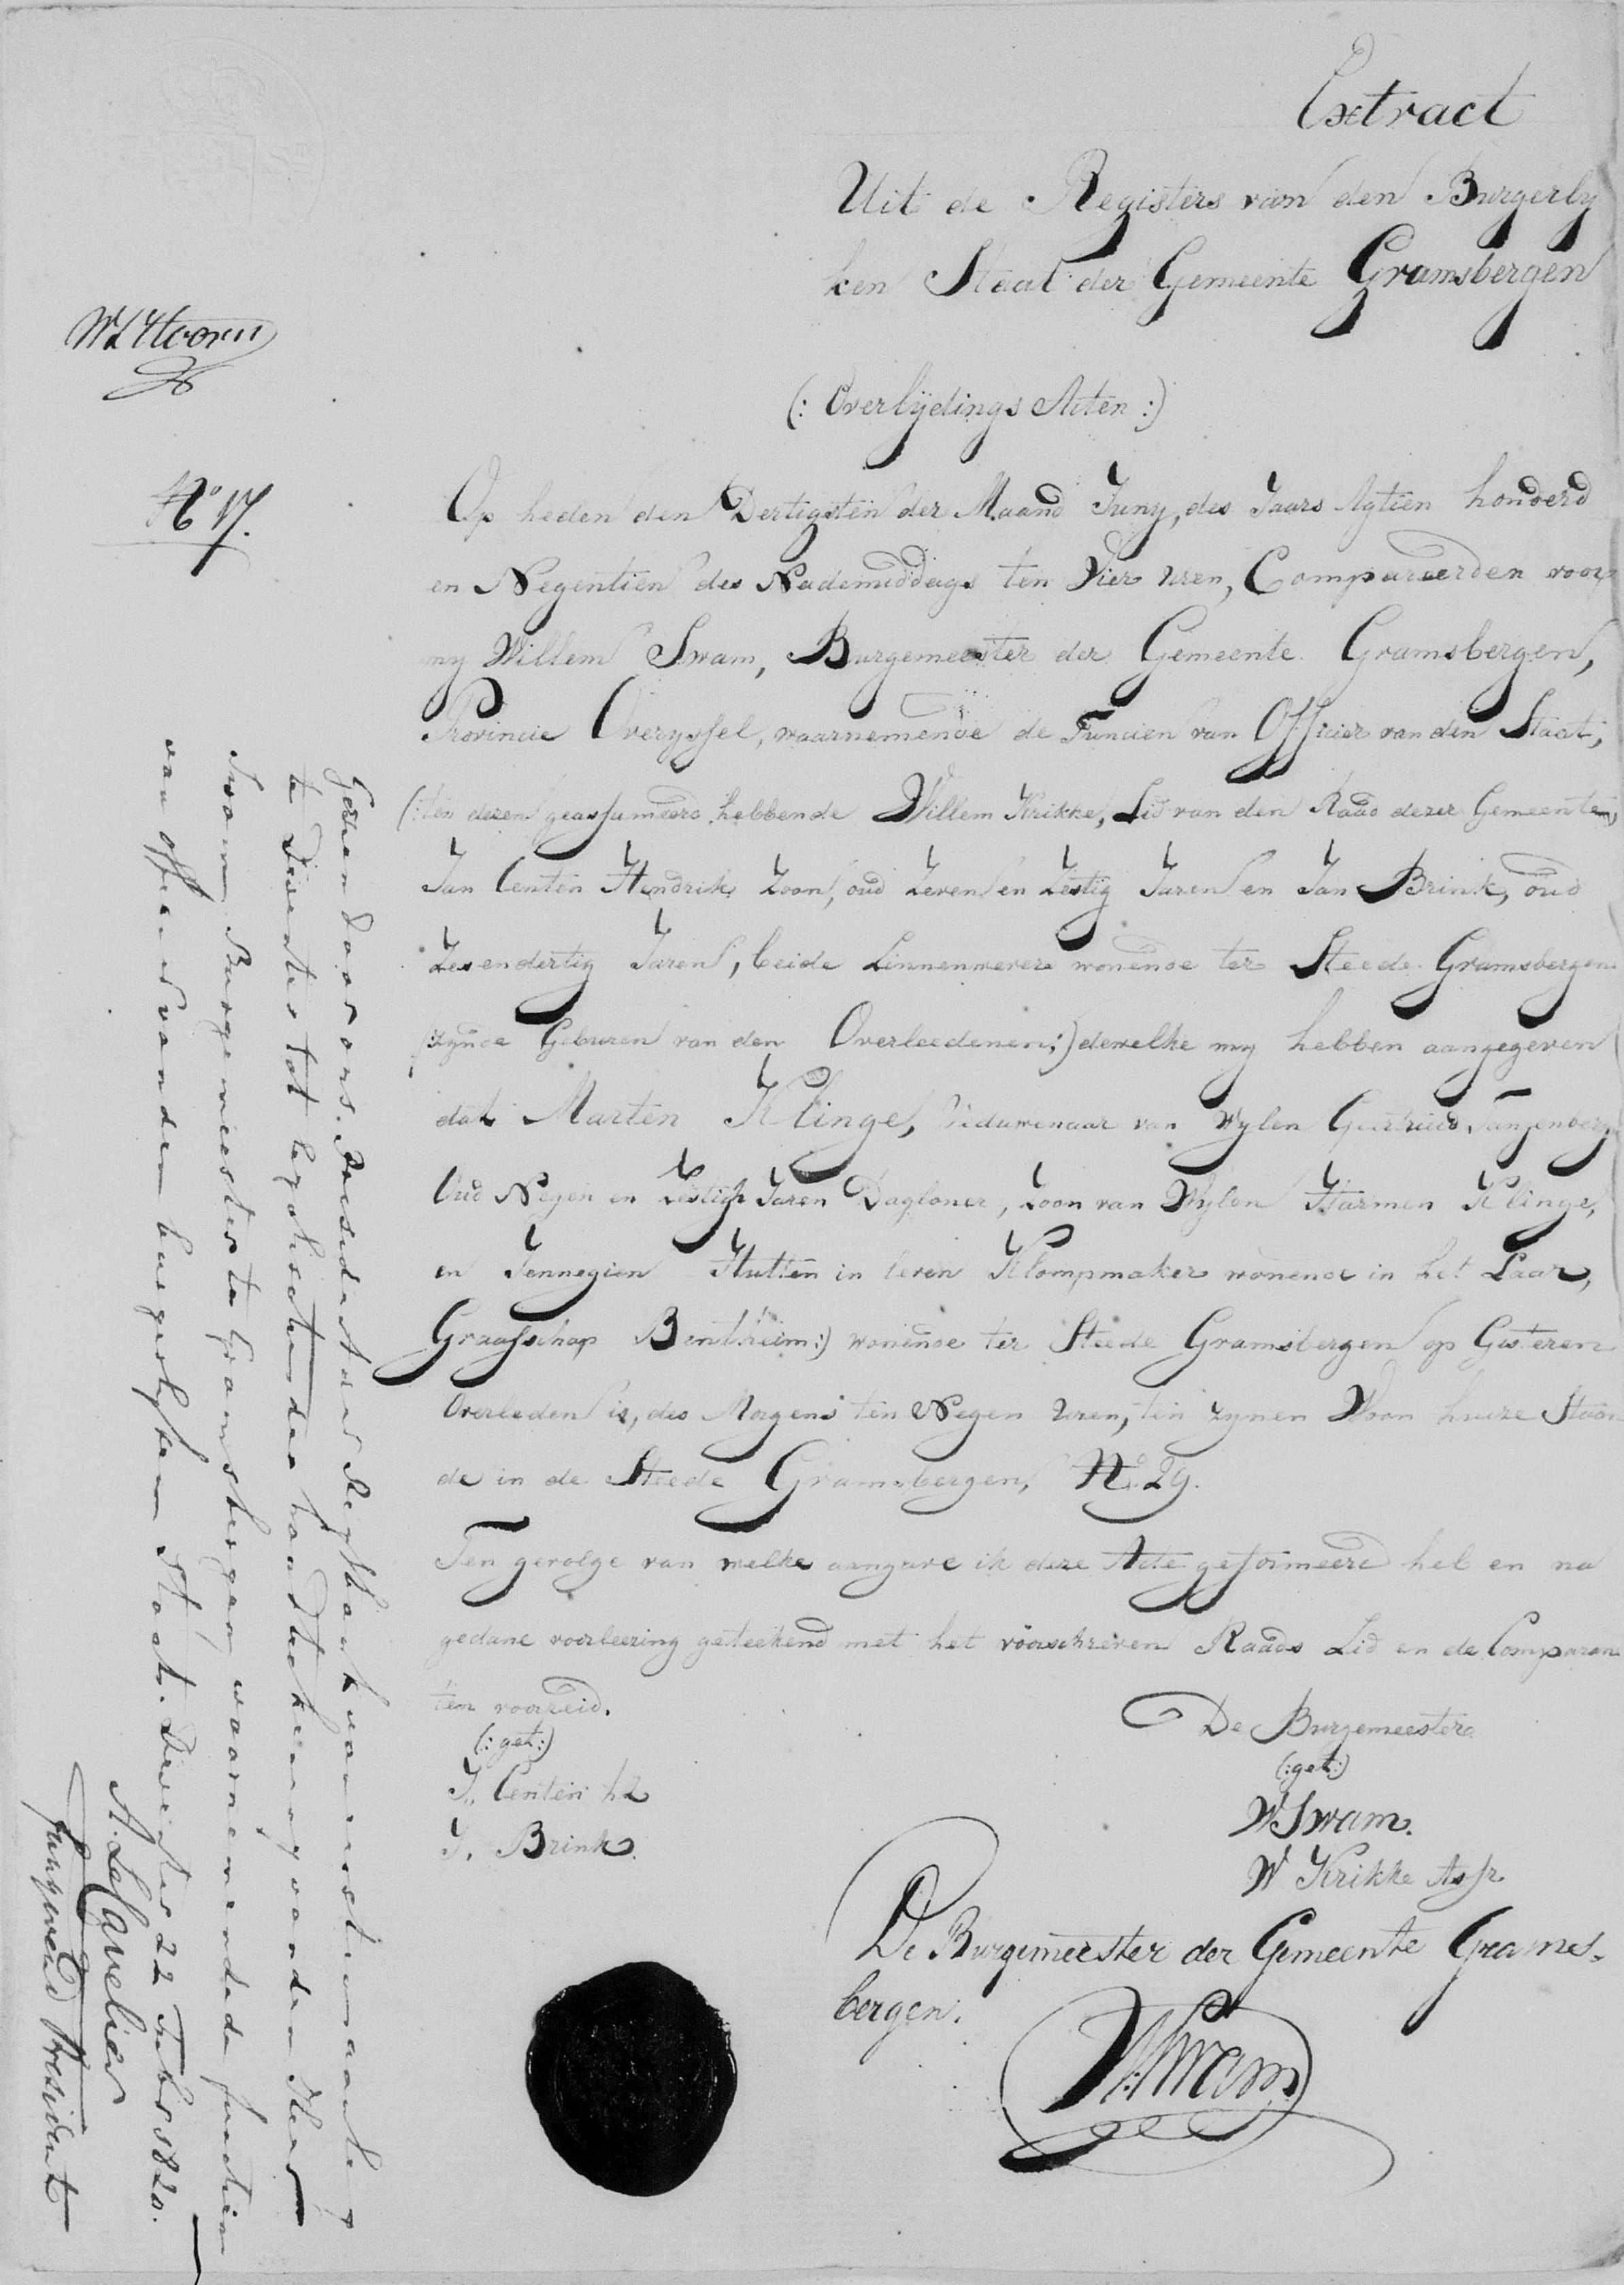 Extract
Uit de Registers van den Burgerly
ken Staat der Gemeente Gramsbergen
(: Overlijdings Acten :)
No 17.
Op heden den Dertigsten der Maand Juny, des Jaars Agtien honderd
en Negentien des Nademiddags ten Vier uren, Compareerden voor
my Willem Swam, Burgemeester der Gemeente Gramsbergen,
Provincie Overyssel, waarnemende de Functien van Officier van den Staat,
(: ten dezen geassumeerd hebbende Willem Krikke, Lid van den Raad dezer Gemeente :)
Jan Centen Hendrik Zoon, oud Zeven en Zestig Jaren en Jan Brink, oud
Zes en dertig Jaren, beide Linnenwevers wonende ter Steede Gramsbergen
(: zynde Geburen van den Overleedenen :) dewelke my hebben aangegeven
dat Marten Klinge, Weduwenaar van Wylen Geertruid
Oud Negen en Zestigh Jaren Dagloner, Zoon van Wylen Harmen Klinge,
en Jennegien Hutten in leven Klompmaker wonende in het Laar,
Graafschap Bentheim :) wonende ter Steede Gramsbergen op Gisteren
Overleden is, des Morgens ten Negen Uren, in zynen Woon huize Staan
de in de Steede Gramsbergen, No. 29.
Ten gevolge van welke aangave ik deze Acte geformeerd heb en na
gedane voorleezing geteekend met het voorschreven Raads Lid en de Comparan
ten voorzeid.
(: get :)
J. Centen hz
J. Brink.
De Burgemeester
(: get :)
W Swam.
W Krikke Assr
De Burgemeester der Gemeente Grams-
bergen.
W Swam
Gezien door ons President der Regtbank van eersten aanleg
te Deventer tot legalisatie der handteekening van den Heer
Swam Burgemeester te Gramsbergen, waarnemende de functien
van officier van den burgerlyken Staat. Deventer 22 Febr 1820.
A. Le Cavelier
fungerend President